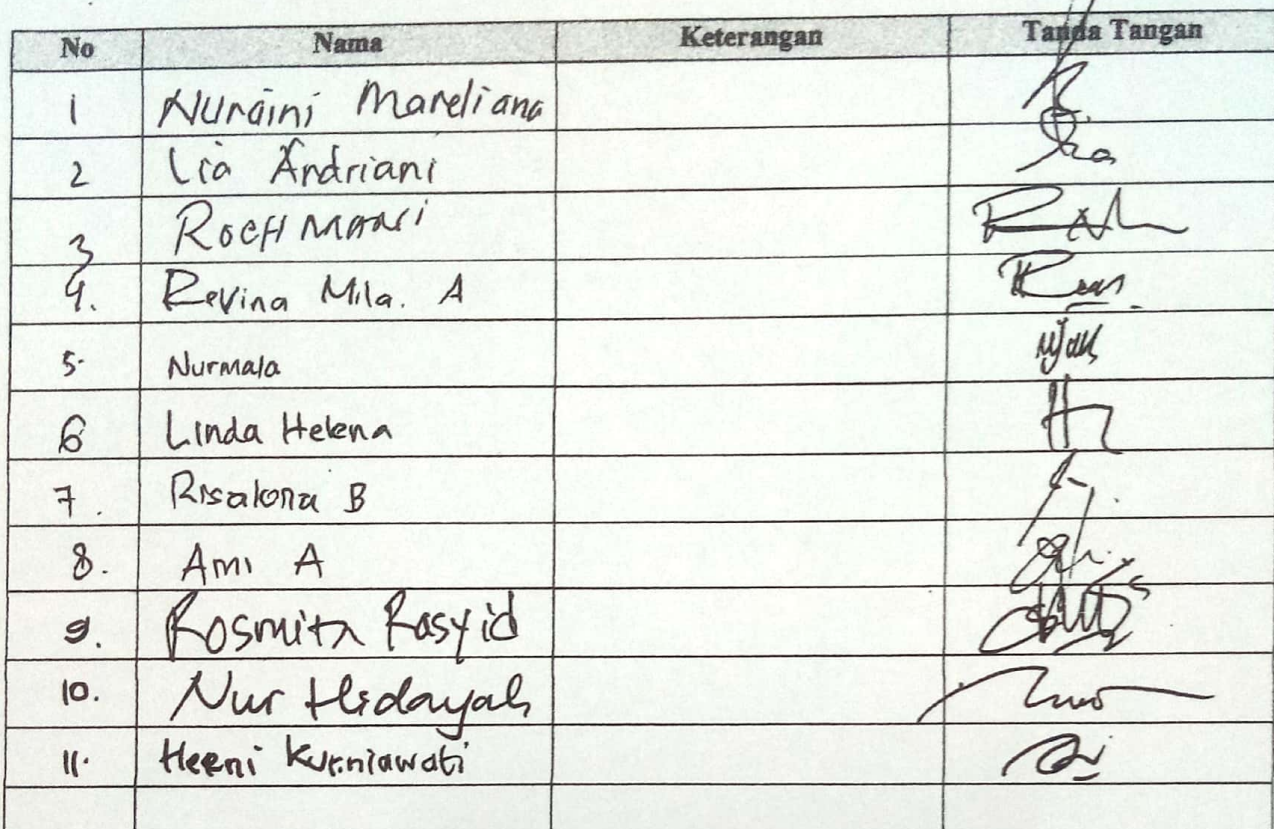 No Nama Keterangan Tanda Tangan
1 Nuraini Mareliana
2 Lia Andriani
3 Rochmaari
4. Revina Mila. A
5. Nurmala
6 Linda Helena
7. Risalona B
8. Ami A
9. Rosmita Rasyid
10. Nur Hidayah
11. Herni Kurniawati